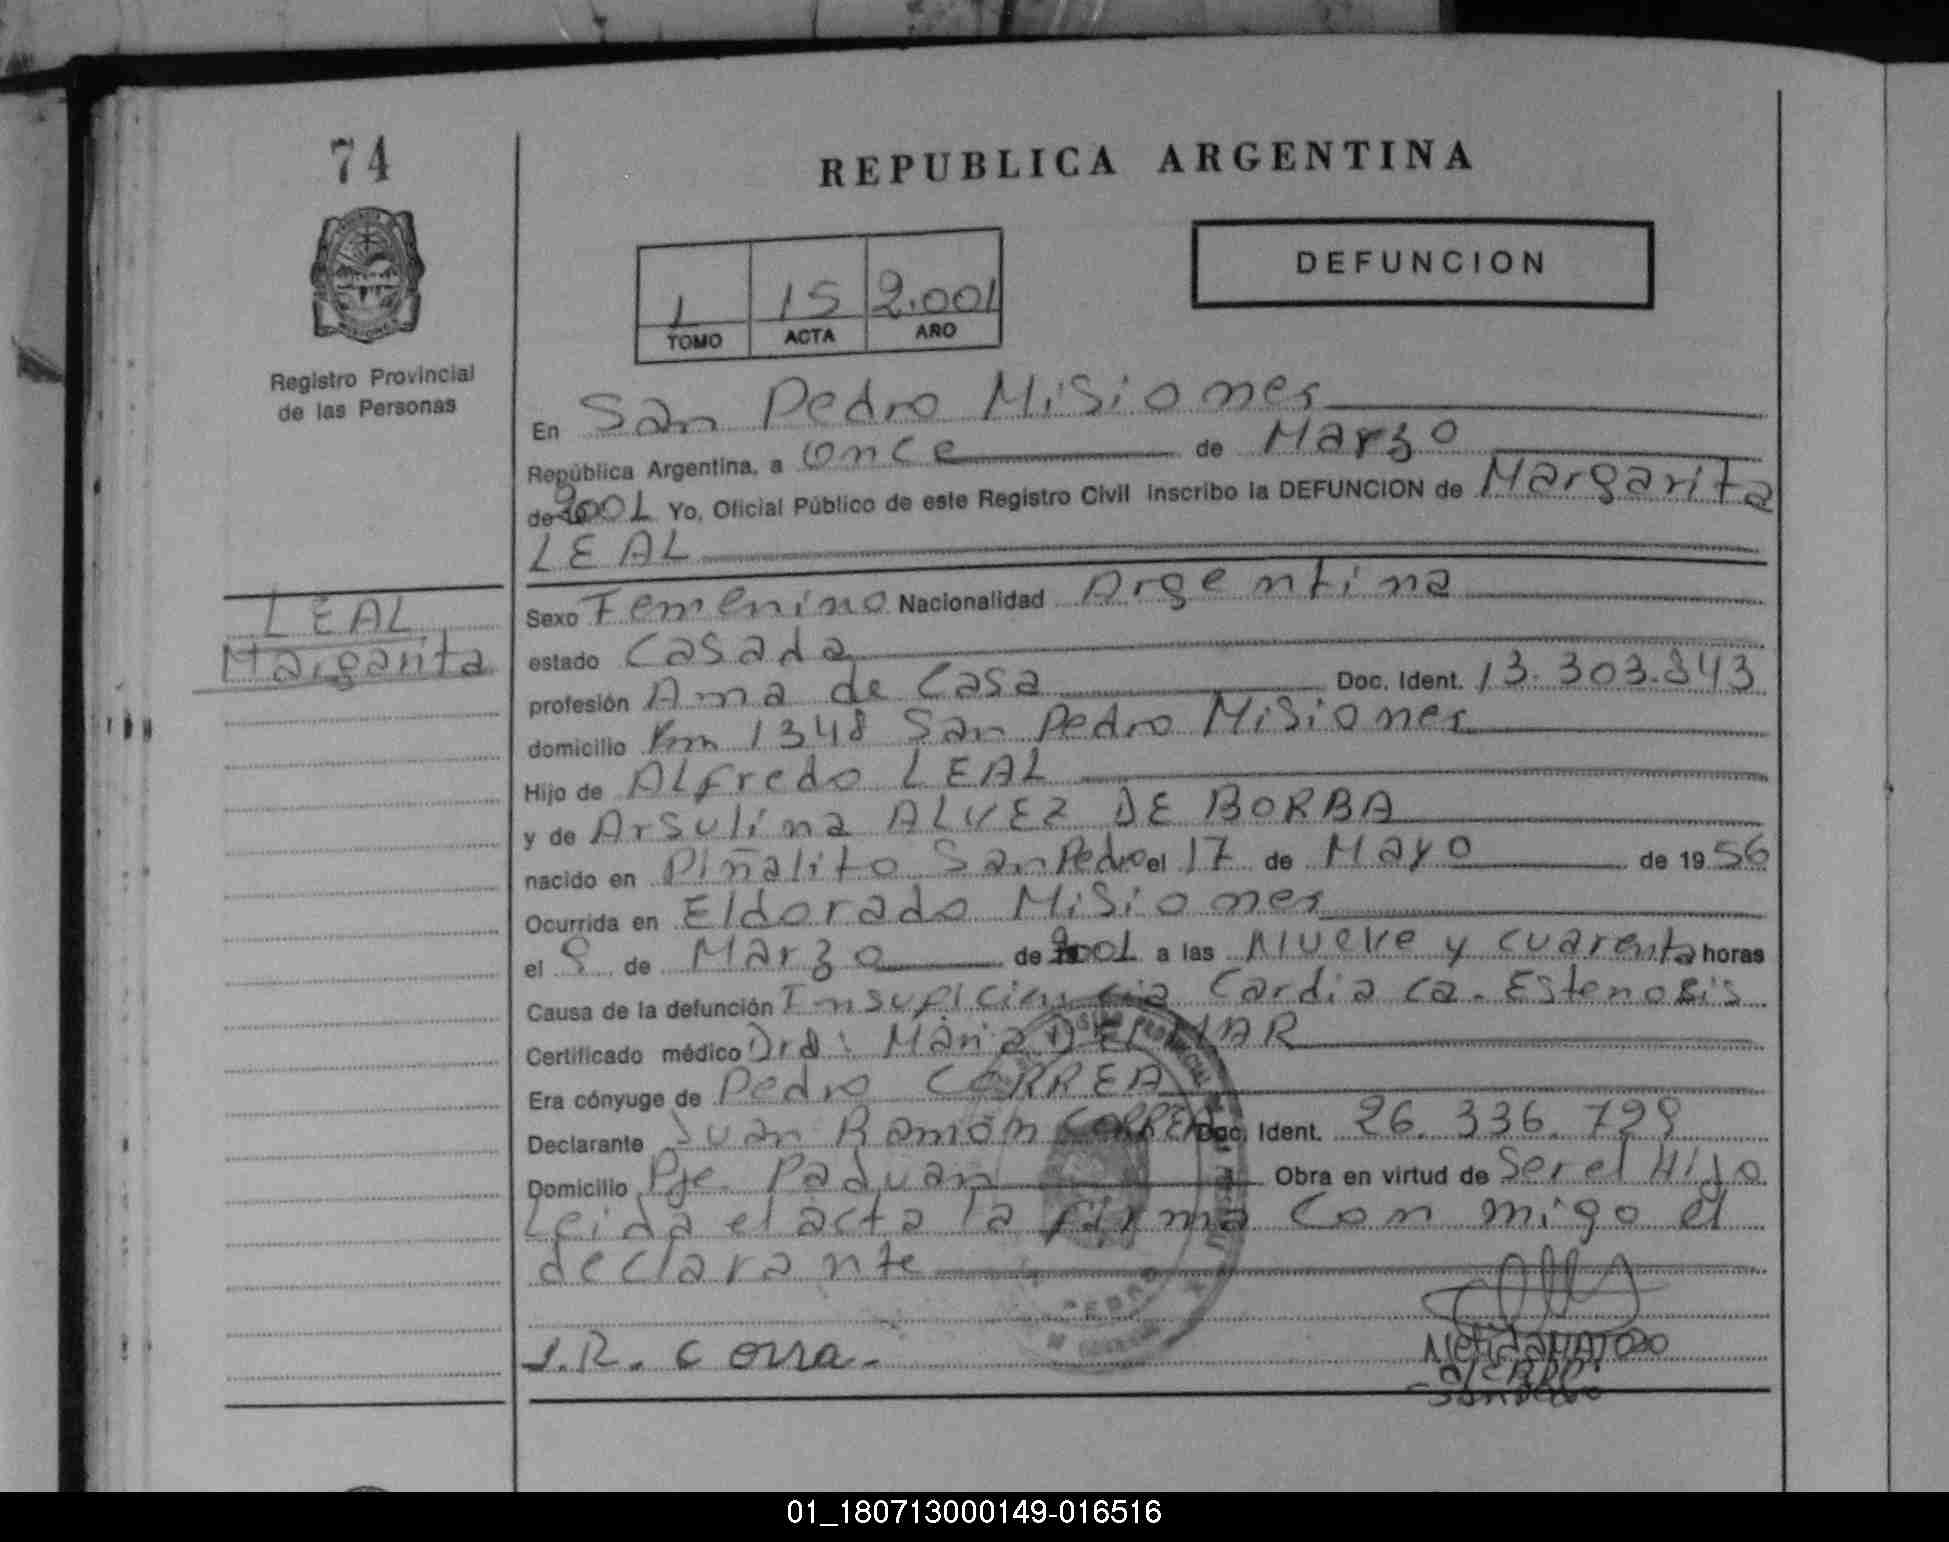 74
REPUBLICA ARGENTINA
DEFUNCION
1 15 2.001
TOMO ACTA AÑO
Registro Provincial
de las Personas
En San Pedro Misiones
República Argentina, a once de Marzo
de 2001 Yo, Oficial Público de este Registro Civil inscribo la DEFUNCION de Margarita
LEAL
LEAL
Margarita
Sexo Femenino Nacionalidad Argentina
estado Casada
profesión Ama de Casa Doc. Ident. 13.303.843
domicilio Km 1348 San Pedro Misiones
Hijo de ALfredo LEAL
y de Arsulina ALVEZ DE BORBA
nacido en Piñalito San Pedro el 17 de Mayo de 1956
Ocurrida en Eldorado Misiones
el 9 de Marzo de 2001 a las Nueve y cuarenta horas
Causa de la defunción Insuficiencia Cardiaca. Estenosis
Certificado médico Dra: Maria DEL MAR
Era cónyuge de Pedro CORREA
Declarante Juan Ramón CORREA Doc. Ident. 26.336.729
Domicilio Pje. Paduan Obra en virtud de Ser el Hijo
Leida el acta la firma con migo el
declarante
J.R. Correa.
01_180713000149-016516